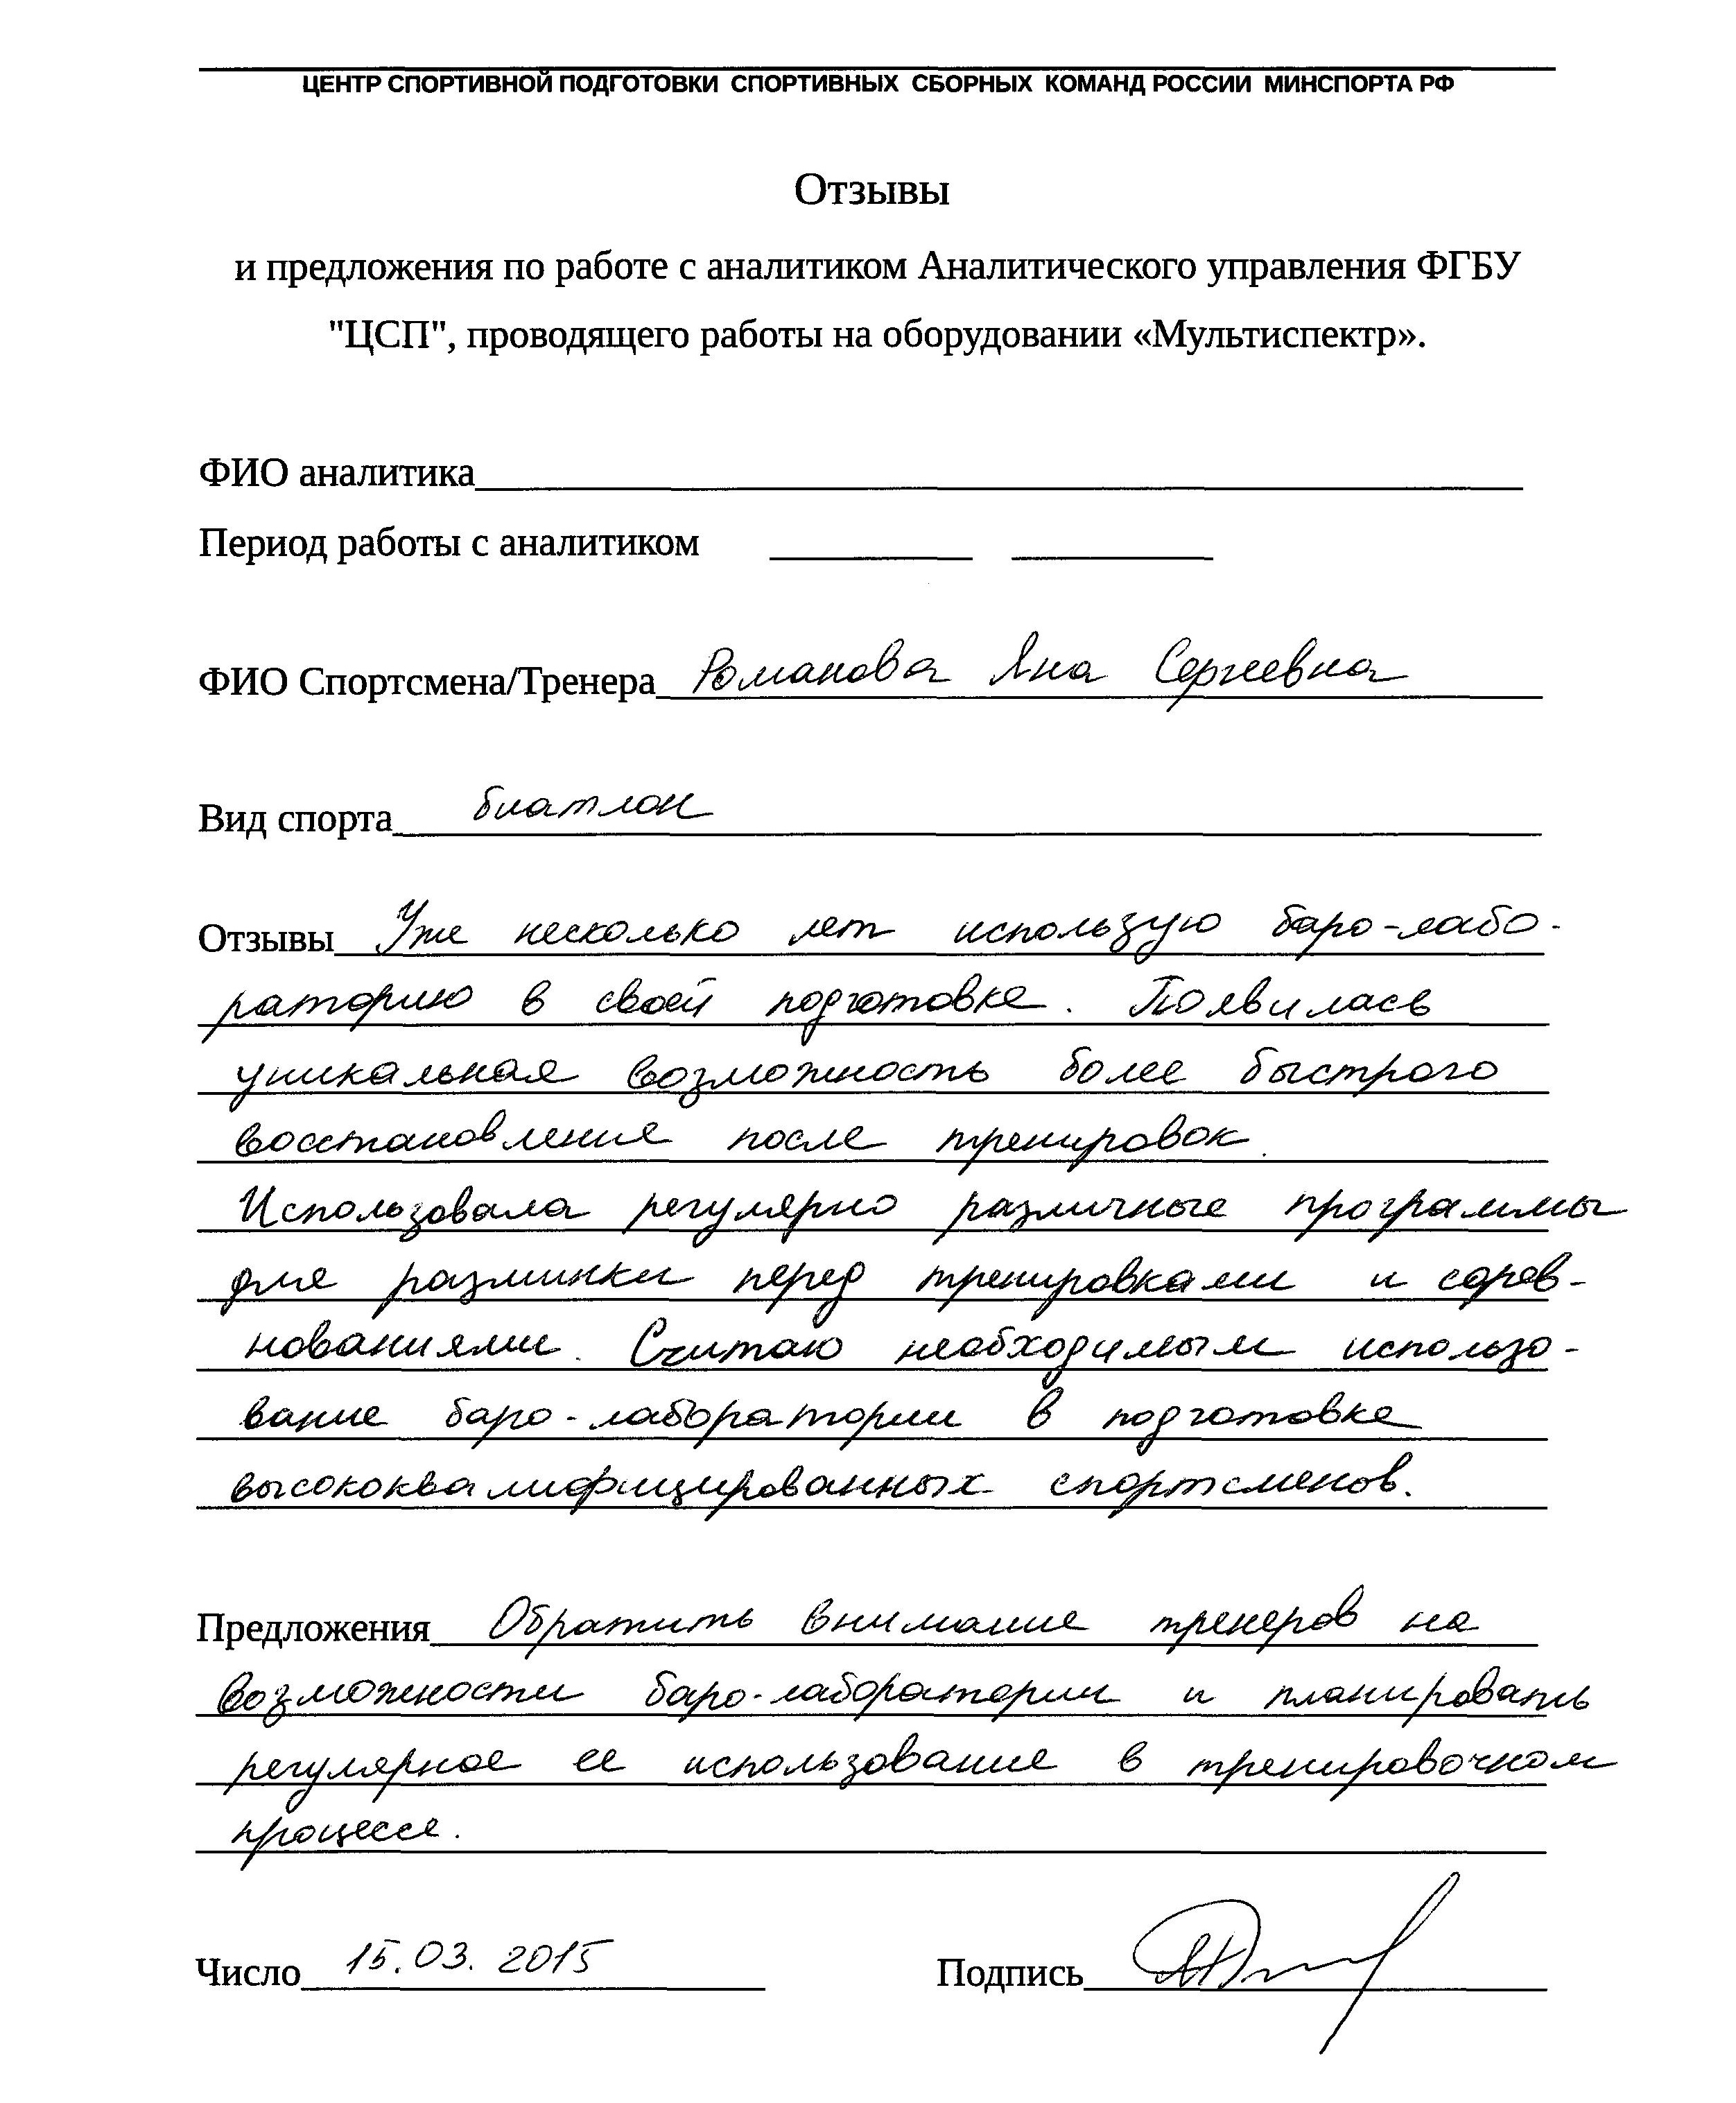 ЦЕНТР СПОРТИВНОЙ ПОДГОТОВКИ СПОРТИВНЫХ СБОРНЫХ КОМАНД РОССИИ МИНСПОРТА РФ
Отзывы
и предложения по работе с аналитиком Аналитического управления ФГБУ
"ЦСП", проводящего работы на оборудовании «Мультиспектр».
ФИО аналитика
Период работы с аналитиком
ФИО Спортсмена/Тренера Романова Яна Сергеевна
Вид спорта биатлон
Отзывы Уже несколько лет использую баро-лабо-
раторию в своей подготовке. Появилась
уникальная возможность более быстрого
восстановление после тренировок.
Использовала регулярно различные программы
для разминки перед тренировками и сорев-
нованиями. Считаю необходимым использо-
вание баро-лаборатории в подготовке
высококвалифицированных спортсменов.
Предложения Обратить внимание тренеров на
возможности баро-лаборатории и планировать
регулярное ее использование в тренировочном
процессе.
Число 15.03.2015 Подпись